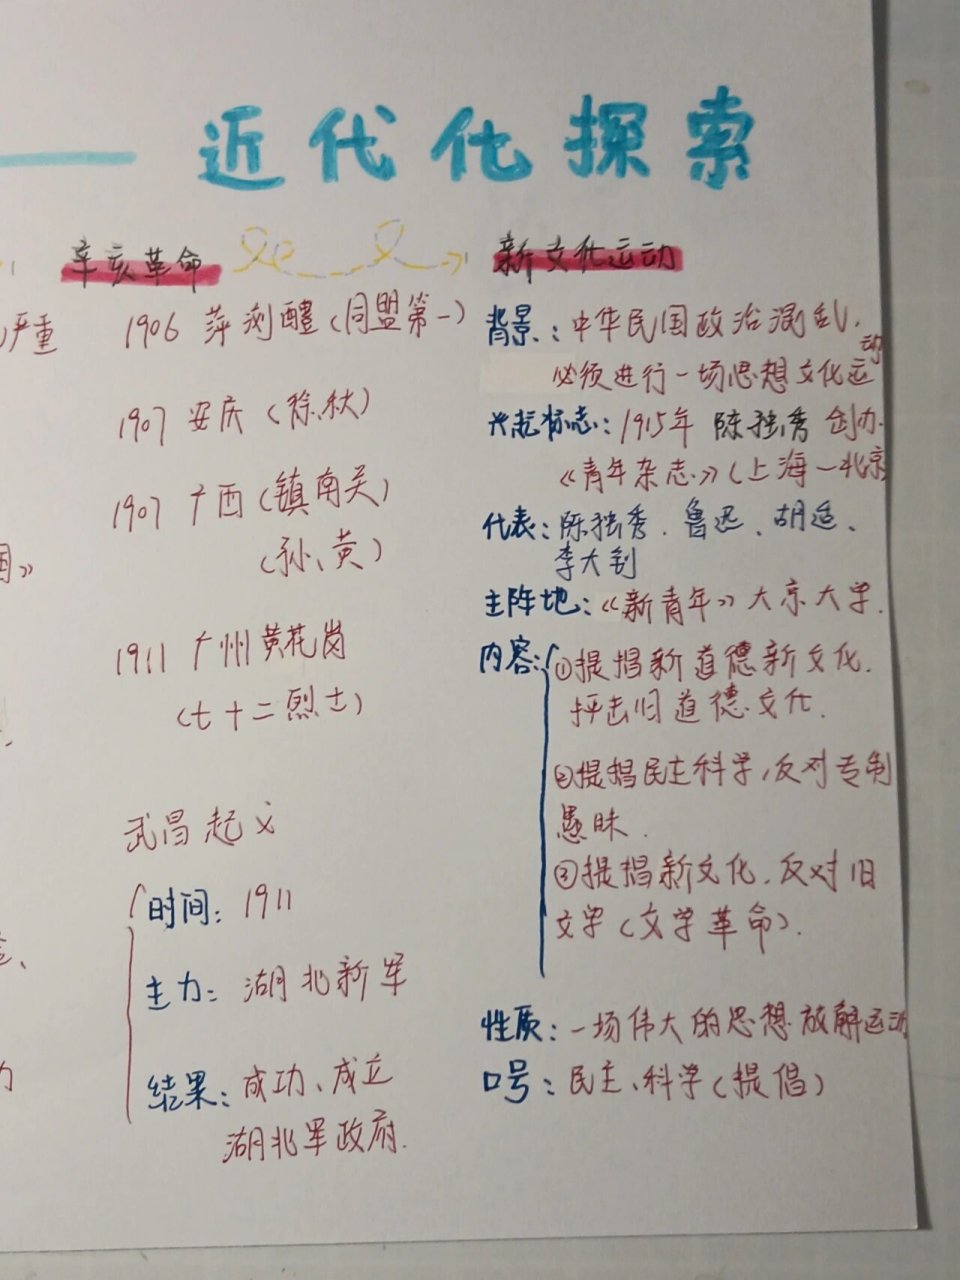 近代化探索
辛亥革命
严重
1906 萍浏醴(同盟第一)
1907 安庆(徐、秋)
1907 广西(镇南关)
(孙、黄)
国》
1911 广州黄花岗
(七十二烈士)
武昌起义
时间: 1911
主力: 湖北新军
结果: 成功、成立
湖北军政府.
新文化运动
背景: 中华民国政治混乱,
必须进行一场思想文化运动
兴起标志: 1915年 陈独秀 创办
《青年杂志》(上海—北京
代表: 陈独秀、鲁迅、胡适、
李大钊
主阵地: 《新青年》大京大学.
内容: ①提倡新道德新文化.
抨击旧道德文化.
②提倡民主科学,反对专制
愚昧.
③提倡新文化,反对旧
文学(文学革命).
性质: 一场伟大的思想放解运动
口号: 民主、科学(提倡)